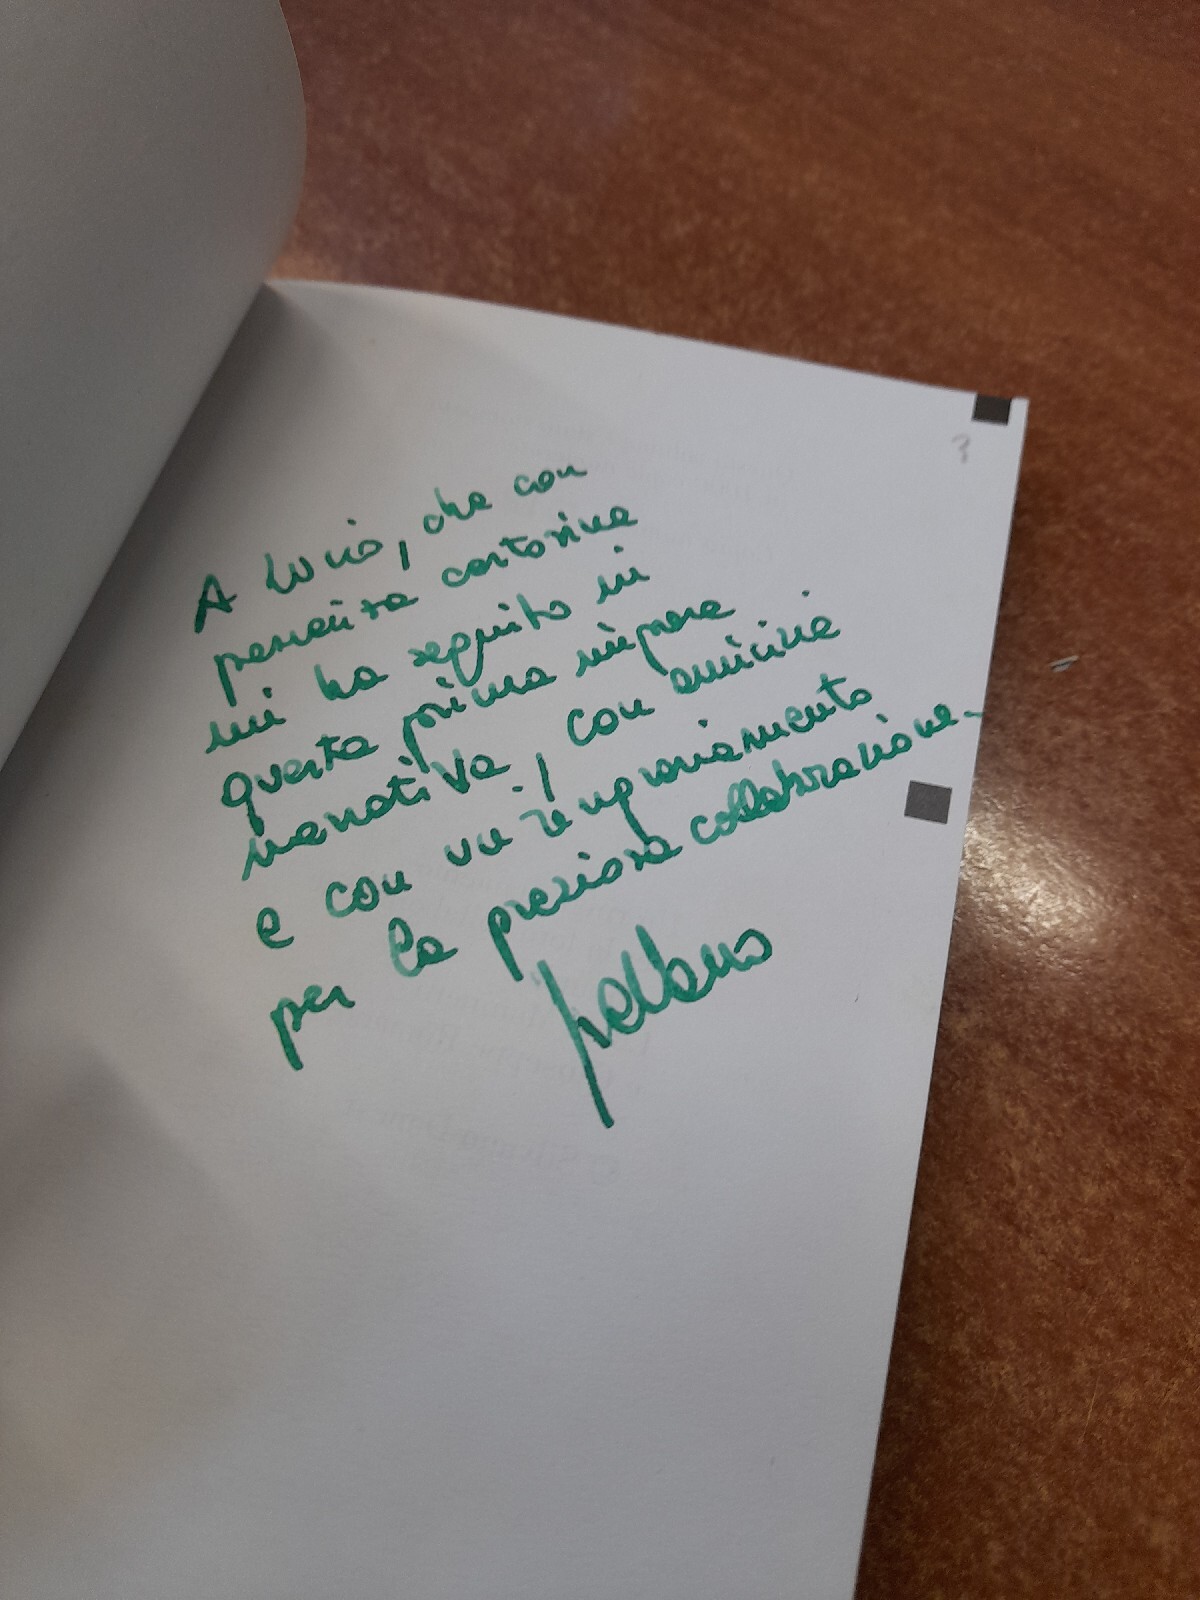 A Lucio, che con
pazienza certosina
mi ha seguito in
questa prima impresa
narrativa, con amicizia
e con un ringraziamento
per la preziosa collaborazione.